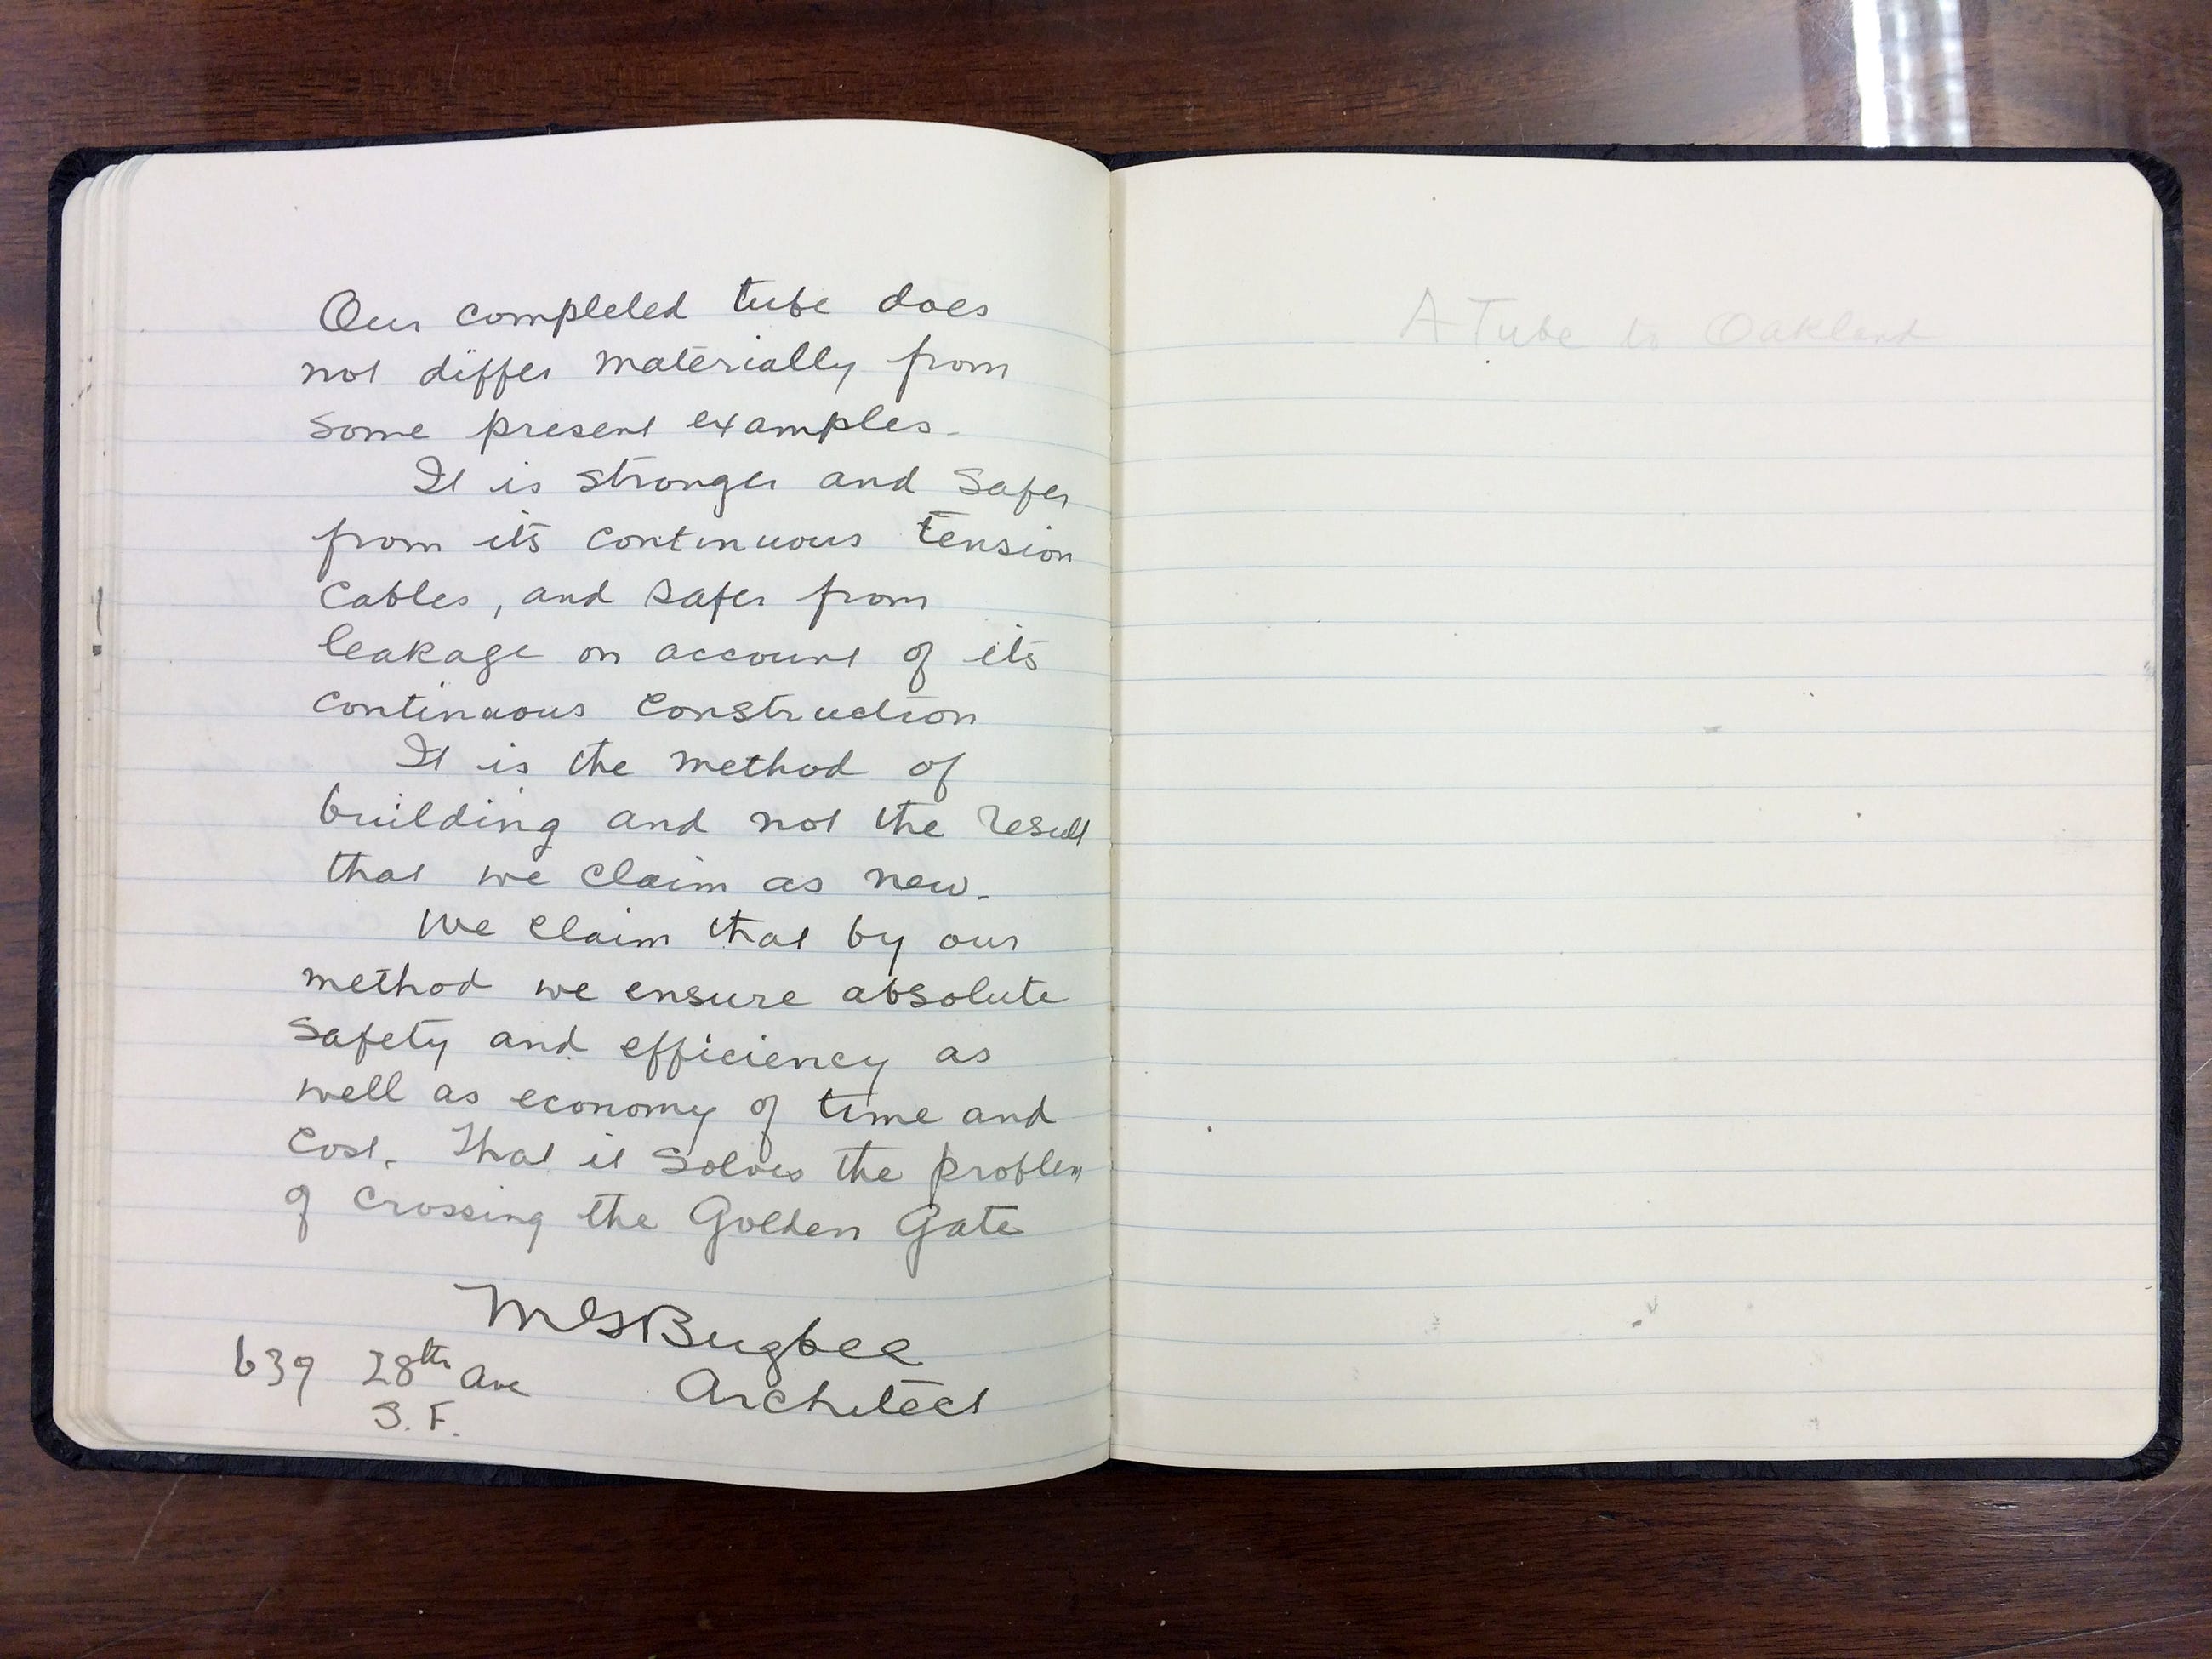 Our completed tube does
not differ materially from
some present examples.
It is stronger and safer
from its continuous tension
cables, and safer from
leakage on account of its
continuous construction
It is the method of
building and not the result
that we claim as new.
We claim that by our
method we ensure absolute
safety and efficiency as
well as economy of time and
cost. That it solves the problem
of crossing the Golden Gate
Bugbee
Architect
639 28th Ave
S. F.
A Tube to Oakland